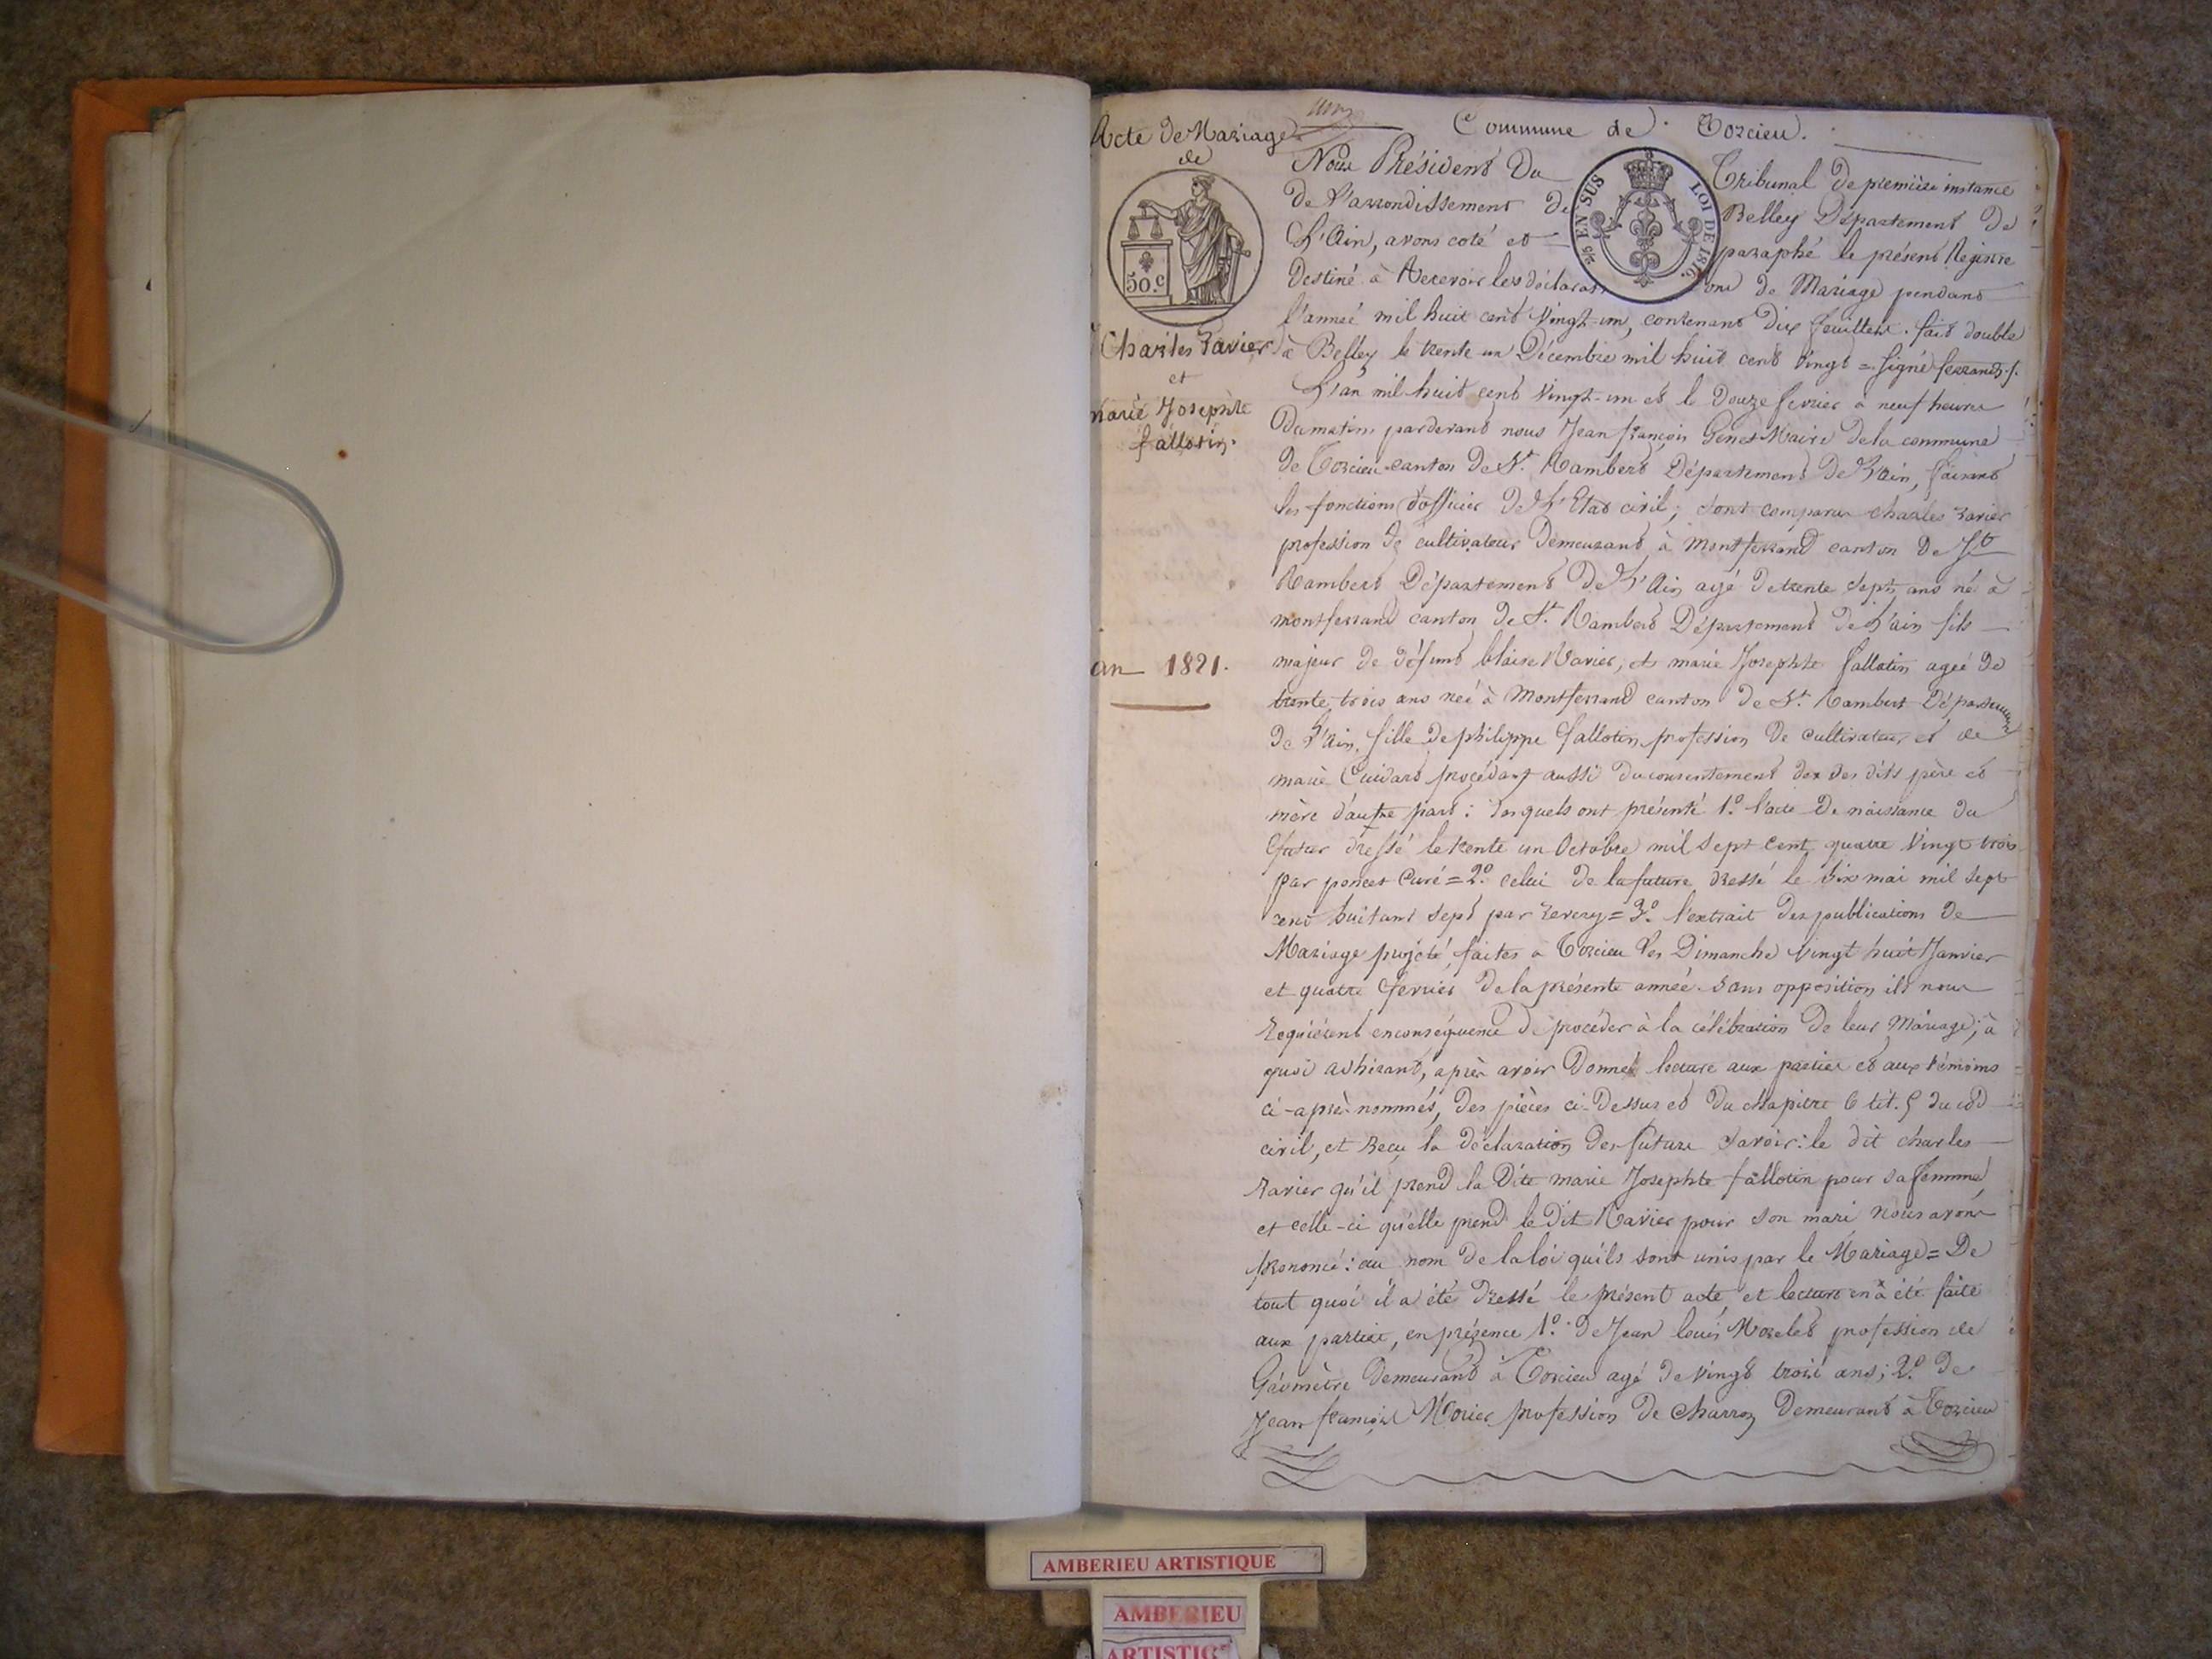 Acte de Mariage
de
50.c
Charles Ravier
et
marie Josephte
fallotin.
an 1821.
un
Commune de Torcieu.
2/5 EN SUS LOI DE 1816.
Nous Président Du Tribunal de première instance
de l'arrondissement de Belley Département de
L'Ain, avons coté et paraphé le présent Registre
Destiné à Recevoir les déclarations de Mariage pendant
l'anneé mil huit cent vingt-un, contenant dix feuillets. fait double
à Belley le trente un Décembre mil huit cent vingt = signé ferrand
L'an mil huit cent vingt-un et le douze fevrier à neuf heures
du matin pardevant nous Jean françois Genet Maire de la commune
de Torcieu canton de St. Rambert Département de L'ain, faisant
les fonctions d'officier de L'Etat civil; sont comparus charles ravier
profession de cultivateur demeurant à montferrand canton de St
Rambert Département de L'Ain agé de trente sept ans né à
montferrand canton de St. Rambert Département de L'ain fils
majeur de défunt blaise Ravier, et marie Josephte fallotin ageé de
trente trois ans neé à Montferrand canton de St. Rambert Département
de L'ain, fille de philippe fallotin profession de cultivateur et de
marie Cuidard procédant aussi du consentement des dits père et
mère d'autre part: lesquels ont présenté 1.º l'acte de naissance du
futur dressé le trente un Octobre mil sept cent quatre vingt trois
par poncet Curé = 2.º celui de la future dressé le six mai mil sept
cent huitant sept par revery = 3.º l'extrait des publications de
Mariage projeté, faites à Torcieu les Dimanche vingt huit Janvier
et quatre fevrier de la présente année. sans opposition ils nous
requièrent en conséquence de procéder à la célébration de leur Mariage; à
quoi adhérant, après avoir donné lecture aux parties et aux témoins
ci-après nommés, des pièces ci-dessus et du chapitre 6 tit. 5 du cod
civil, et reçu la déclaration des futurs savoir: le dit charles
ravier qu'il prend la Dite marie Josephte fallotin pour sa femme
et celle-ci qu'elle prend le dit Ravier pour son mari nous avons
prononcé: au nom de la loi qu'ils sont unis par le Mariage = De
tout quoi il a été dressé le présent acte et lecture en à été faite
aux parties, en présence 1.º de Jean louis Morelet profession de
Géomètre demeurant à Torcieu agé de vingt trois ans; 2.º de
Jean françois Morier profession de charron demeurant à Torcieu
AMBERIEU ARTISTIQUE
AMBERIEU
ARTISTIQ